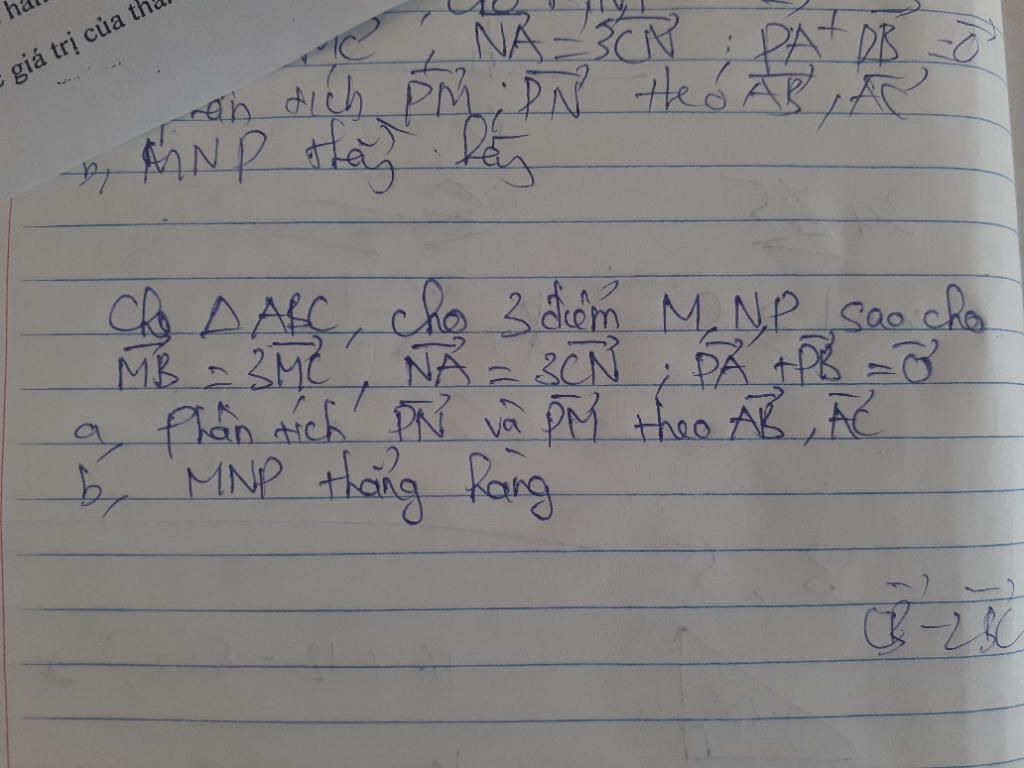 giá trị của
MC , NA = 3CN ; PA + PB = 0
tích PM ; PN theo AB , AC
b, MNP thẳng hàng
Cho △ ABC , cho 3 điểm M, N, P sao cho
MB = 3MC , NA = 3CN ; PA + PB = 0
a, Phân tích PN và PM theo AB , AC
b, MNP thẳng hàng
CB - 2BC